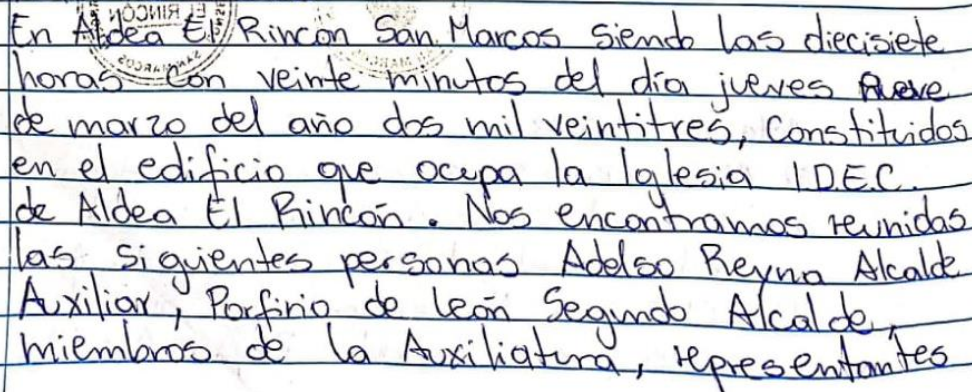 En Aldea El Rincón San Marcos siendo las diecisiete
horas con veinte minutos del día jueves nueve
de marzo del año dos mil veintitres, Constituidos
en el edificio que ocupa la Iglesia I.D.E.C.
de Aldea El Rincón. Nos encontramos reunidas
las siguientes personas Adelso Reyna Alcalde
Auxiliar, Porfirio de león Segundo Alcalde,
miembros de la Auxiliatura, representantes